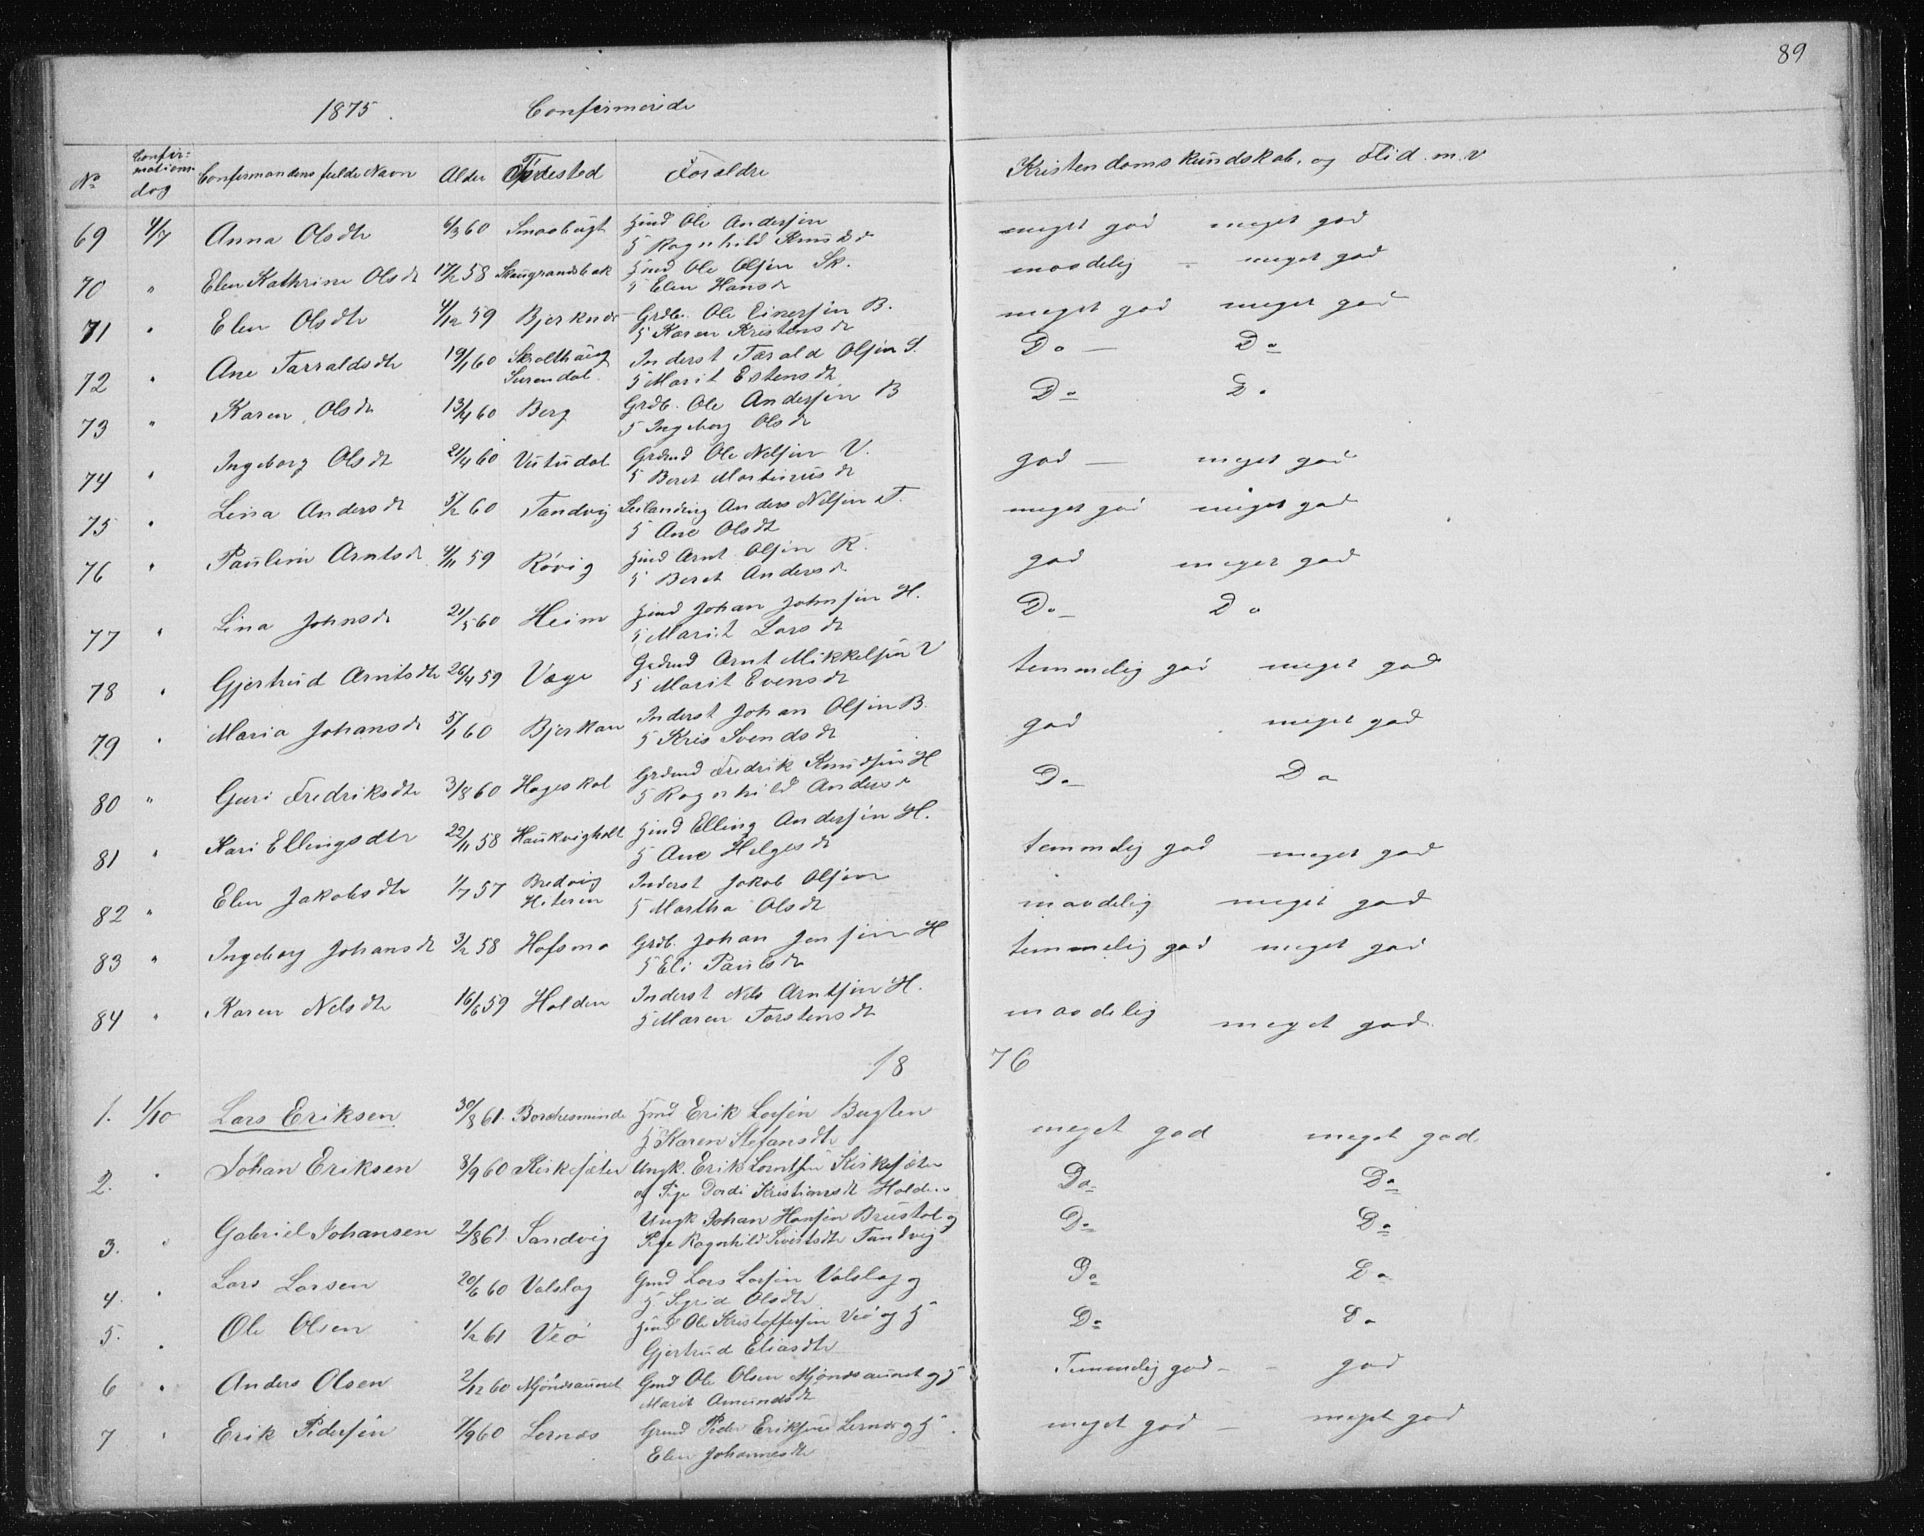 89
1875. Confirmerede
No Confirmations dag Confirmandens fulde Navn Alder Fødested Forældre Kristendomskundskab, og Flid m. v
69 4/7 Anna Olsdtr 6/3 60 Smaabugt Hmd Ole Andersen meget god meget god
H Ragnhild Knudsdr
70 " Elen Kathrine Olsdr 17/2 58 Skaugrandsbak Hmd Ole Olsen Sk. maadelig - meget god
H Elen Hansdr
71 " Elen Olsdtr 4/12 59 Bjerknes Grdb. Ole Einersen B. meget god meget god
H Karen Kristensdr
72 " Ane Tarraldsdtr 19/1 60 Skralthaug Inderst Tarald Olsen S. Do — Do
Surendal H Marit Estensdr
73 " Karen Olsdr 13/4 60 Berg Grdb. Ole Andersen B Do Do
H Ingeborg Olsdr
74 " Ingeborg Olsdr 21/4 60 Vutudal Grdmd Ole Nelsen V. god — meget god
H Beret Martinusdr
75 " Lina Andersdr 5/2 60 Tandvig Leilænding Anders Nelsen T. meget god meget god
H Ane Olsdt
76 " Pauline Arntsdr 4/11 59 Røvig Hmd Arnt Olsen R. god meget god
H Beret Andersdr
77 " Lina Johnsdr 21/5 60 Heim Hmd Johan Johnsen H. Do Do
H Marit Larsdr
78 " Gjertrud Arntsdtr 26/4 59 Vage Grdmd Arnt Mikkelsen V temmelig god meget god
H Marit Evensdr
79 " Maria Johansdr 5/1 60 Bjerkan Inderst Johan Olsen B. god meget god
H Kris Svendsdr
80 " Guri Fredriksdtr 3/8 60 Hageskal Grdmd Fredrik Knudsen H Do Do
H Ragnhild Andersdr
81 " Kari Ellingsdtr 22/11 58 Haukvigholt Hmd Elling Andersen H. temmelig god meget god
H Ane Helgesdr
82 " Elen Jakobsdtr 1/7 57 Bredvig Inderst Jakob Olsen maadelig meget god
Hiteren H Martha Olsdr
83 " Ingeborg Johansdr 3/2 58 Hofsmo Grdb. Johan Jonsen H temmelig god meget god
H Eli Paulsdr
84 " Karen Nelsdtr 16/6 59 Holden Inderst Nels Arntsen H. maadelig meget god
H Maren Torstensdr
18 76
1. 1/10 Lars Eriksen 30/8 61. Bordhesminde Hmd Erik Larsen Bugten meget god meget god
H Karen Stefansdtr
2. " Johan Eriksen 8/9 60 Kirkesæter Ungk. Erik Lorntsen Kirkesæter Do Do
og Pige Dordi Kristiansdt Holden
3. " Gabriel Johansen 2/8 61. Sandvig Ungk Johan Hansen Brustøl og Do Do
Pige Ragnhild Sivertsdtr Tandvig
4. " Lars Larsen 20/6 60 Valslag Gmd Lars Larsen Valslag og Do Do
H Sigrid Olsdtr
5. " Ole Olsen 1/2 61 Veø Hmd Ole Kristoffersen Veø og H Do Do
Gjertrud Eliasdtr
6 " Anders Olsen 2/12 60 Mjønesaunet Gmd Ole Olsen Mjønesaunet og H Temmelig god - - god
Marit Amundsdt
7 " Erik Pedersen 1/9 60 Lernes Grmd Peder Eriksen Lernes og H meget god — meget god
Elen Johannesdtr